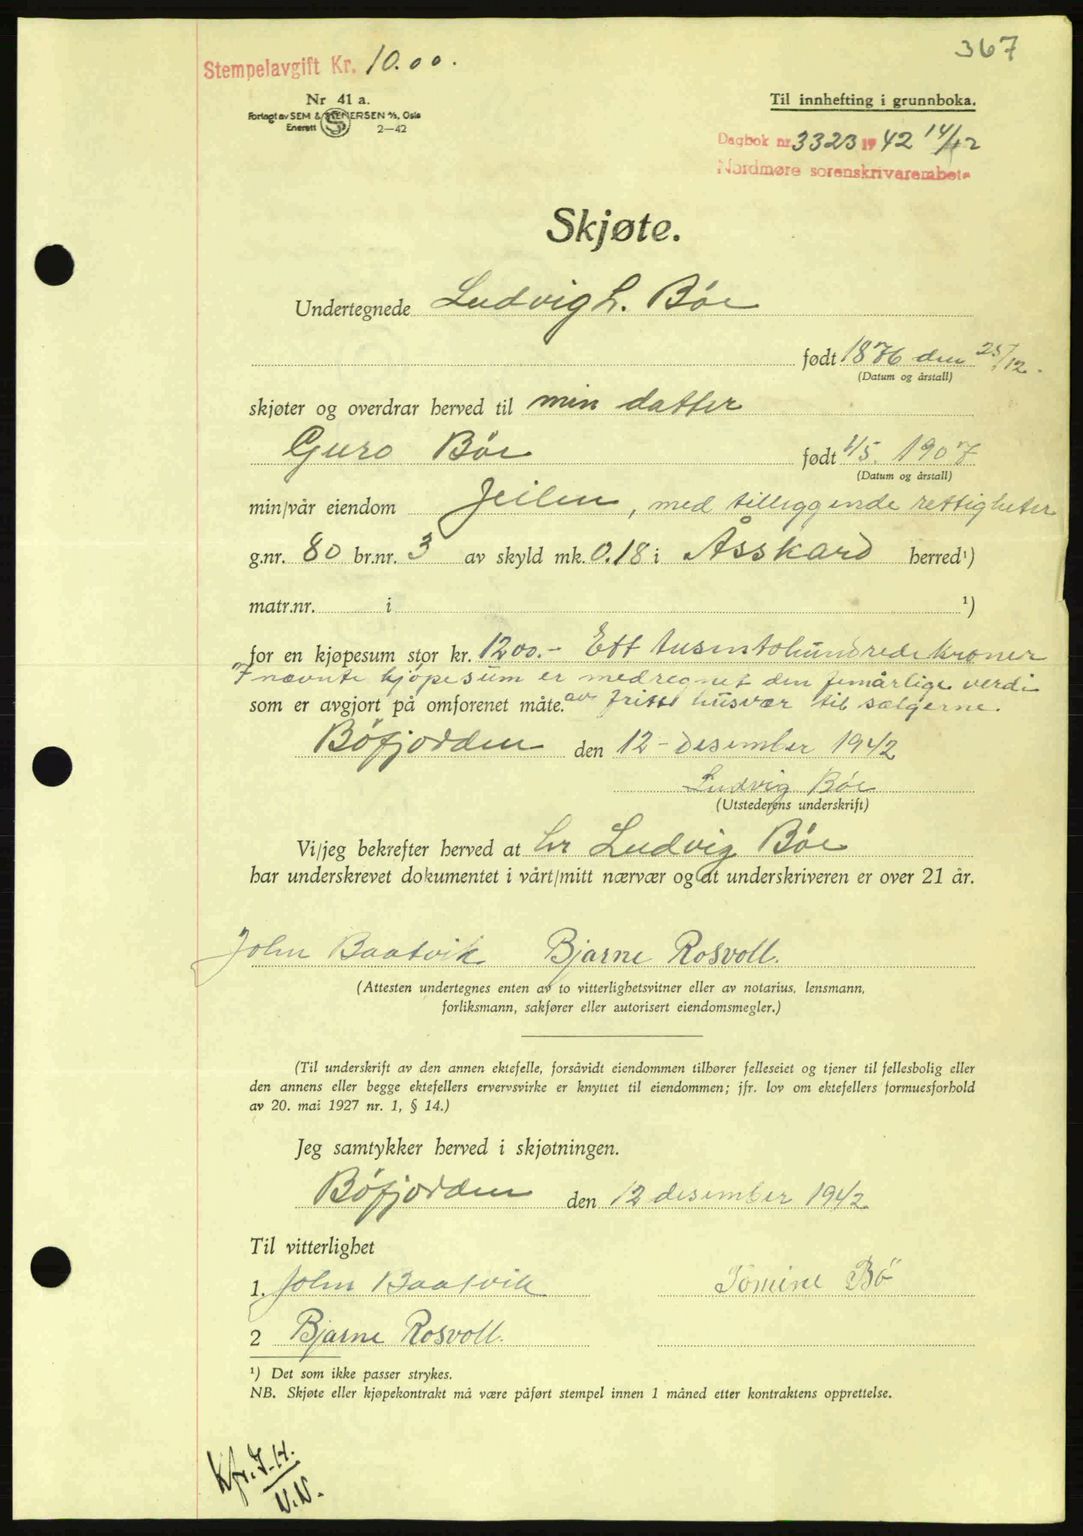 367
Stempelavgift Kr. 10.00.
Nr 41 a.
Forlagt av SEM & STENERSEN A/S, Oslo
Enerett 2-42
Til innhefting i grunnboka.
Dagbok nr 3323 1942 14/12
Nordmøre sorenskrivarembete
Skjøte.
Undertegnede Ludvig L. Bøe
født 1876 den 25/12.
(Datum og årstall)
skjøter og overdrar herved til min datter
Guro Bøe født 1/5. 1907
(Datum og årstall)
min/vår eiendom Jeilen, med tilliggende rettigheter
g.nr. 80 br.nr. 3 av skyld mk. 0.18 i Åsskard herred¹)
matr.nr. i ¹)
for en kjøpesum stor kr. 1200.- Ett tusentohundrede kroner
I nævnte kjøpesum er medregnet den femårlige verdi
som er avgjort på omforenet måte. av fritt husvær til sælgerne.
Bøfjorden den 12 - desember 1942
Ludvig Bøe
(Utstederens underskrift)
Vi/jeg bekrefter herved at hr Ludvig Bøe
har underskrevet dokumentet i vårt/mitt nærvær og at underskriveren er over 21 år.
John Baatvik Bjarne Rosvoll.
(Attesten undertegnes enten av to vitterlighetsvitner eller av notarius, lensmann,
forliksmann, sakfører eller autorisert eiendomsmegler.)
(Til underskrift av den annen ektefelle, forsåvidt eiendommen tilhører felleseiet og tjener til fellesbolig eller
den annens eller begge ektefellers ervervsvirke er knyttet til eiendommen; jfr. lov om ektefellers formuesforhold
av 20. mai 1927 nr. 1, § 14.)
Jeg samtykker herved i skjøtningen.
Bøfjorden den 12 desember 1942
Til vitterlighet
1. John Baatvik Tomine Bø
2 Bjarne Rosvoll.
¹) Det som ikke passer strykes.
NB. Skjøte eller kjøpekontrakt må være påført stempel innen 1 måned etter kontraktens opprettelse.
Kfr. J.H.
N.N.